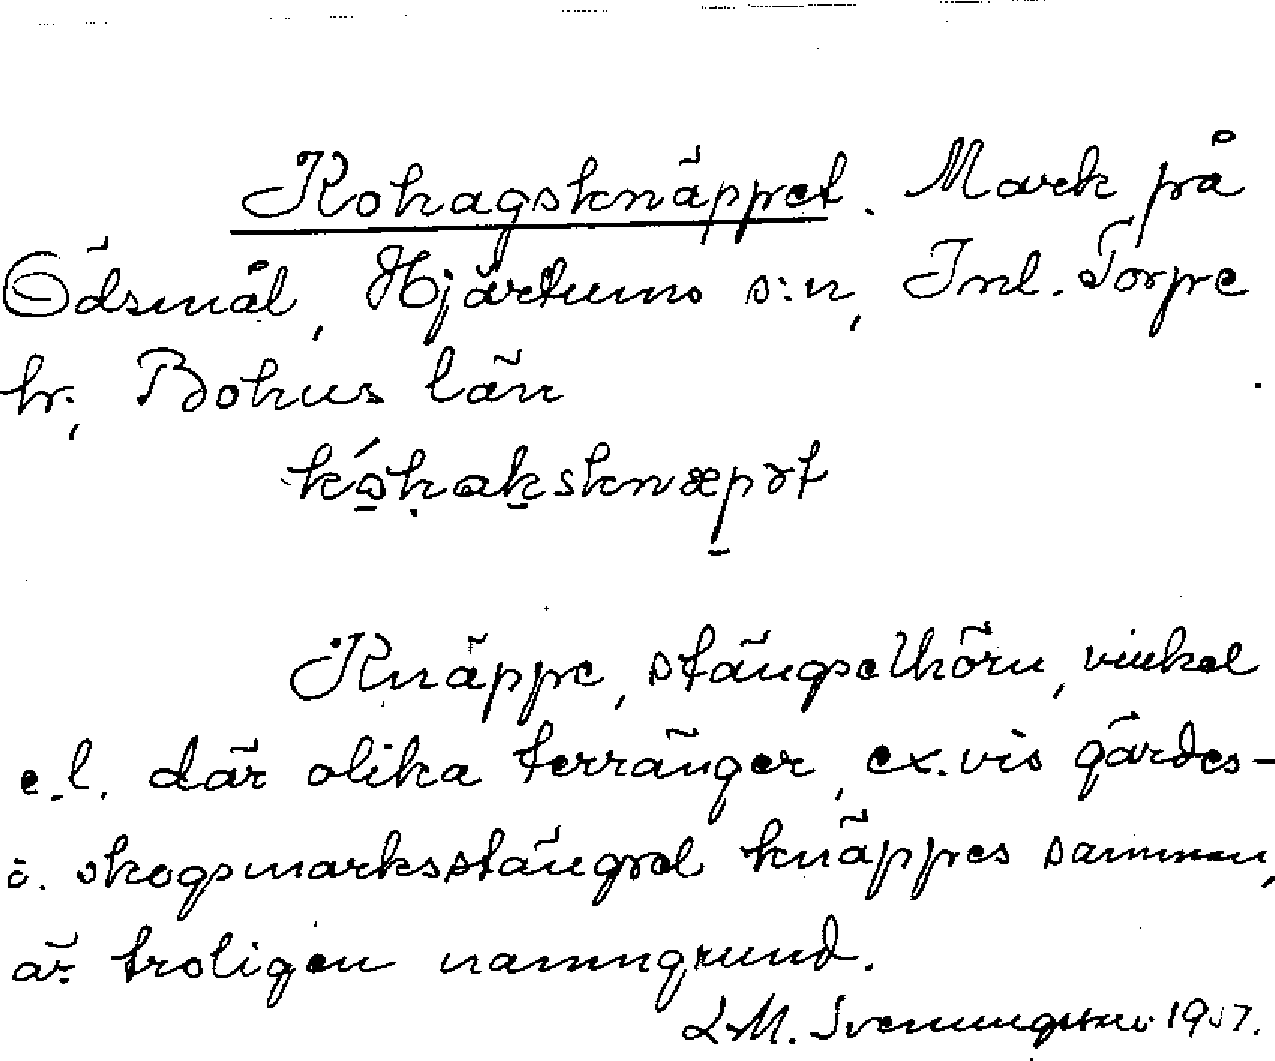 Kohagsknäppet. Mark på
Ödsmål, Hjärtums s:n, Inl. Torpe
hr, Bohus län
Knäppe, stängselhörn, vinkel
e.l. där olika terränger, ex.vis gärdes-
o. skogsmarksstängsel knäppes samman,
är troligen namngrund.
L.M. Svenungsson